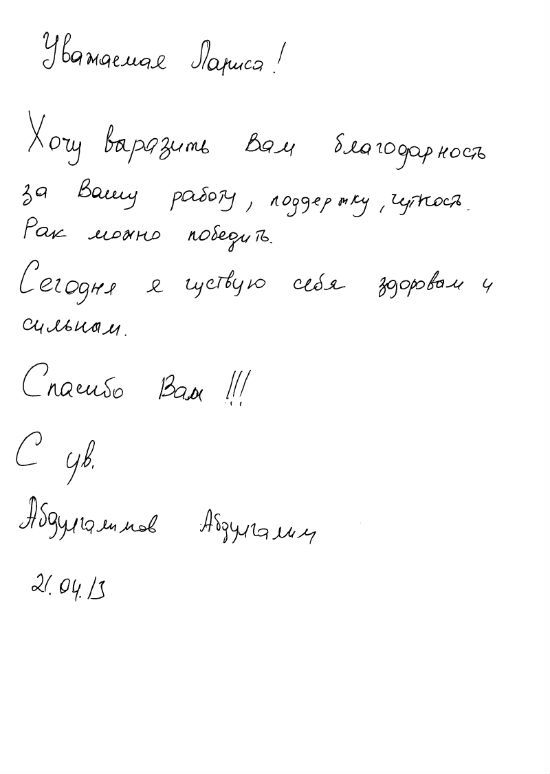 Уважаемая Лариса!
Хочу выразить Вам благодарность
за Вашу работу, поддержку, чуткость.
Рак можно победить.
Сегодня я чуствую себя здоровам и
сильнам.
Спасибо Вам !!!
С ув.
Абдулгалимов Абдулгалим
21.04.13